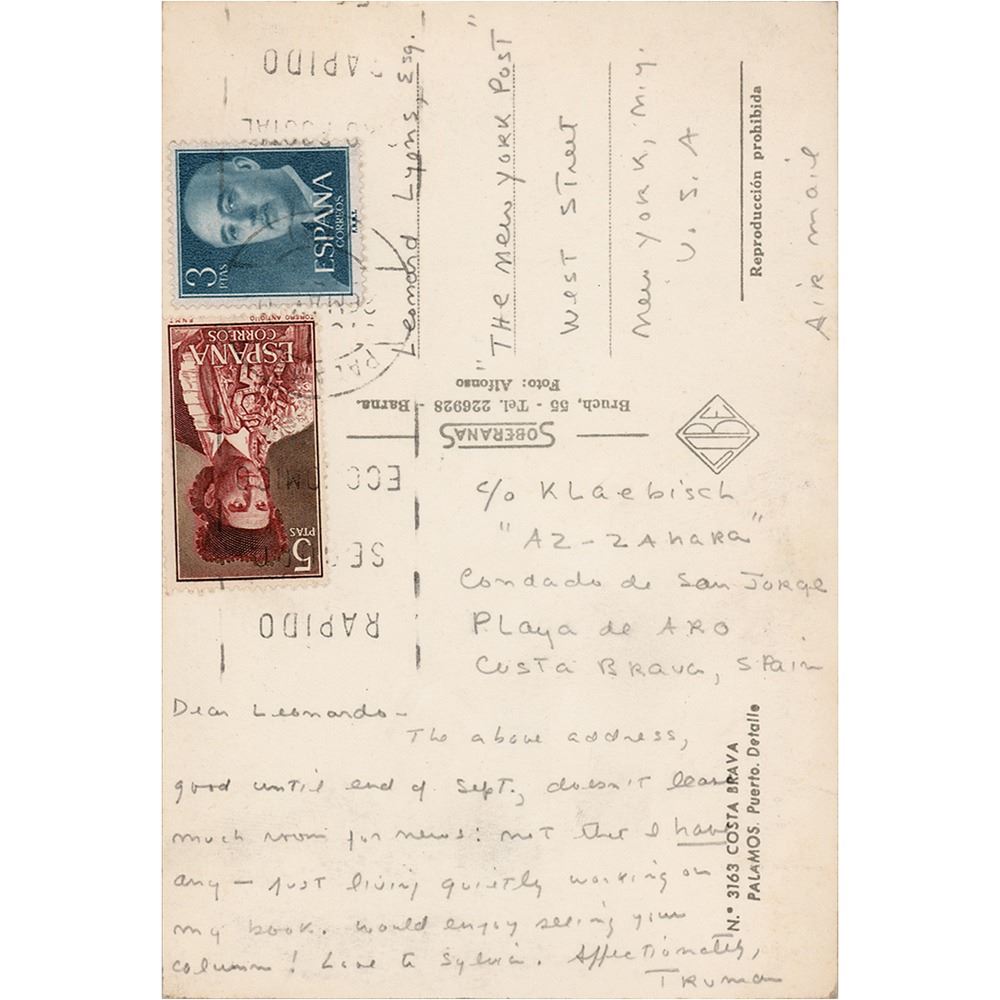 c/o Klaebisch
"AZ-ZAHARA"
Condado de San Jorge
Playa de Aro
Costa Brava, Spain
Dear Leonardo—
The above address,
good until end of Sept., doesn't leave
much room for news: not that I have
any — just living quietly working on
my book. Would enjoy seeing your
column! Love to Sylvia. Affectionately,
Truman
Leonard Lyons, Esq.
"The New York Post"
West Street
New York, N.Y.
U.S.A
Air mail
Reproducción prohibida
SOBERANAS
Bruch, 55 - Tel. 226928 - Barna.
Foto: Alfonso
N.° 3163 COSTA BRAVA
PALAMOS. Puerto. Detalle
3 PTAS
ESPAÑA
CORREOS
ESPAÑA
CORREOS
TORERO ANTIGUO
F.N.M.T.
5 PTAS
RAPIDO
RAPIDO